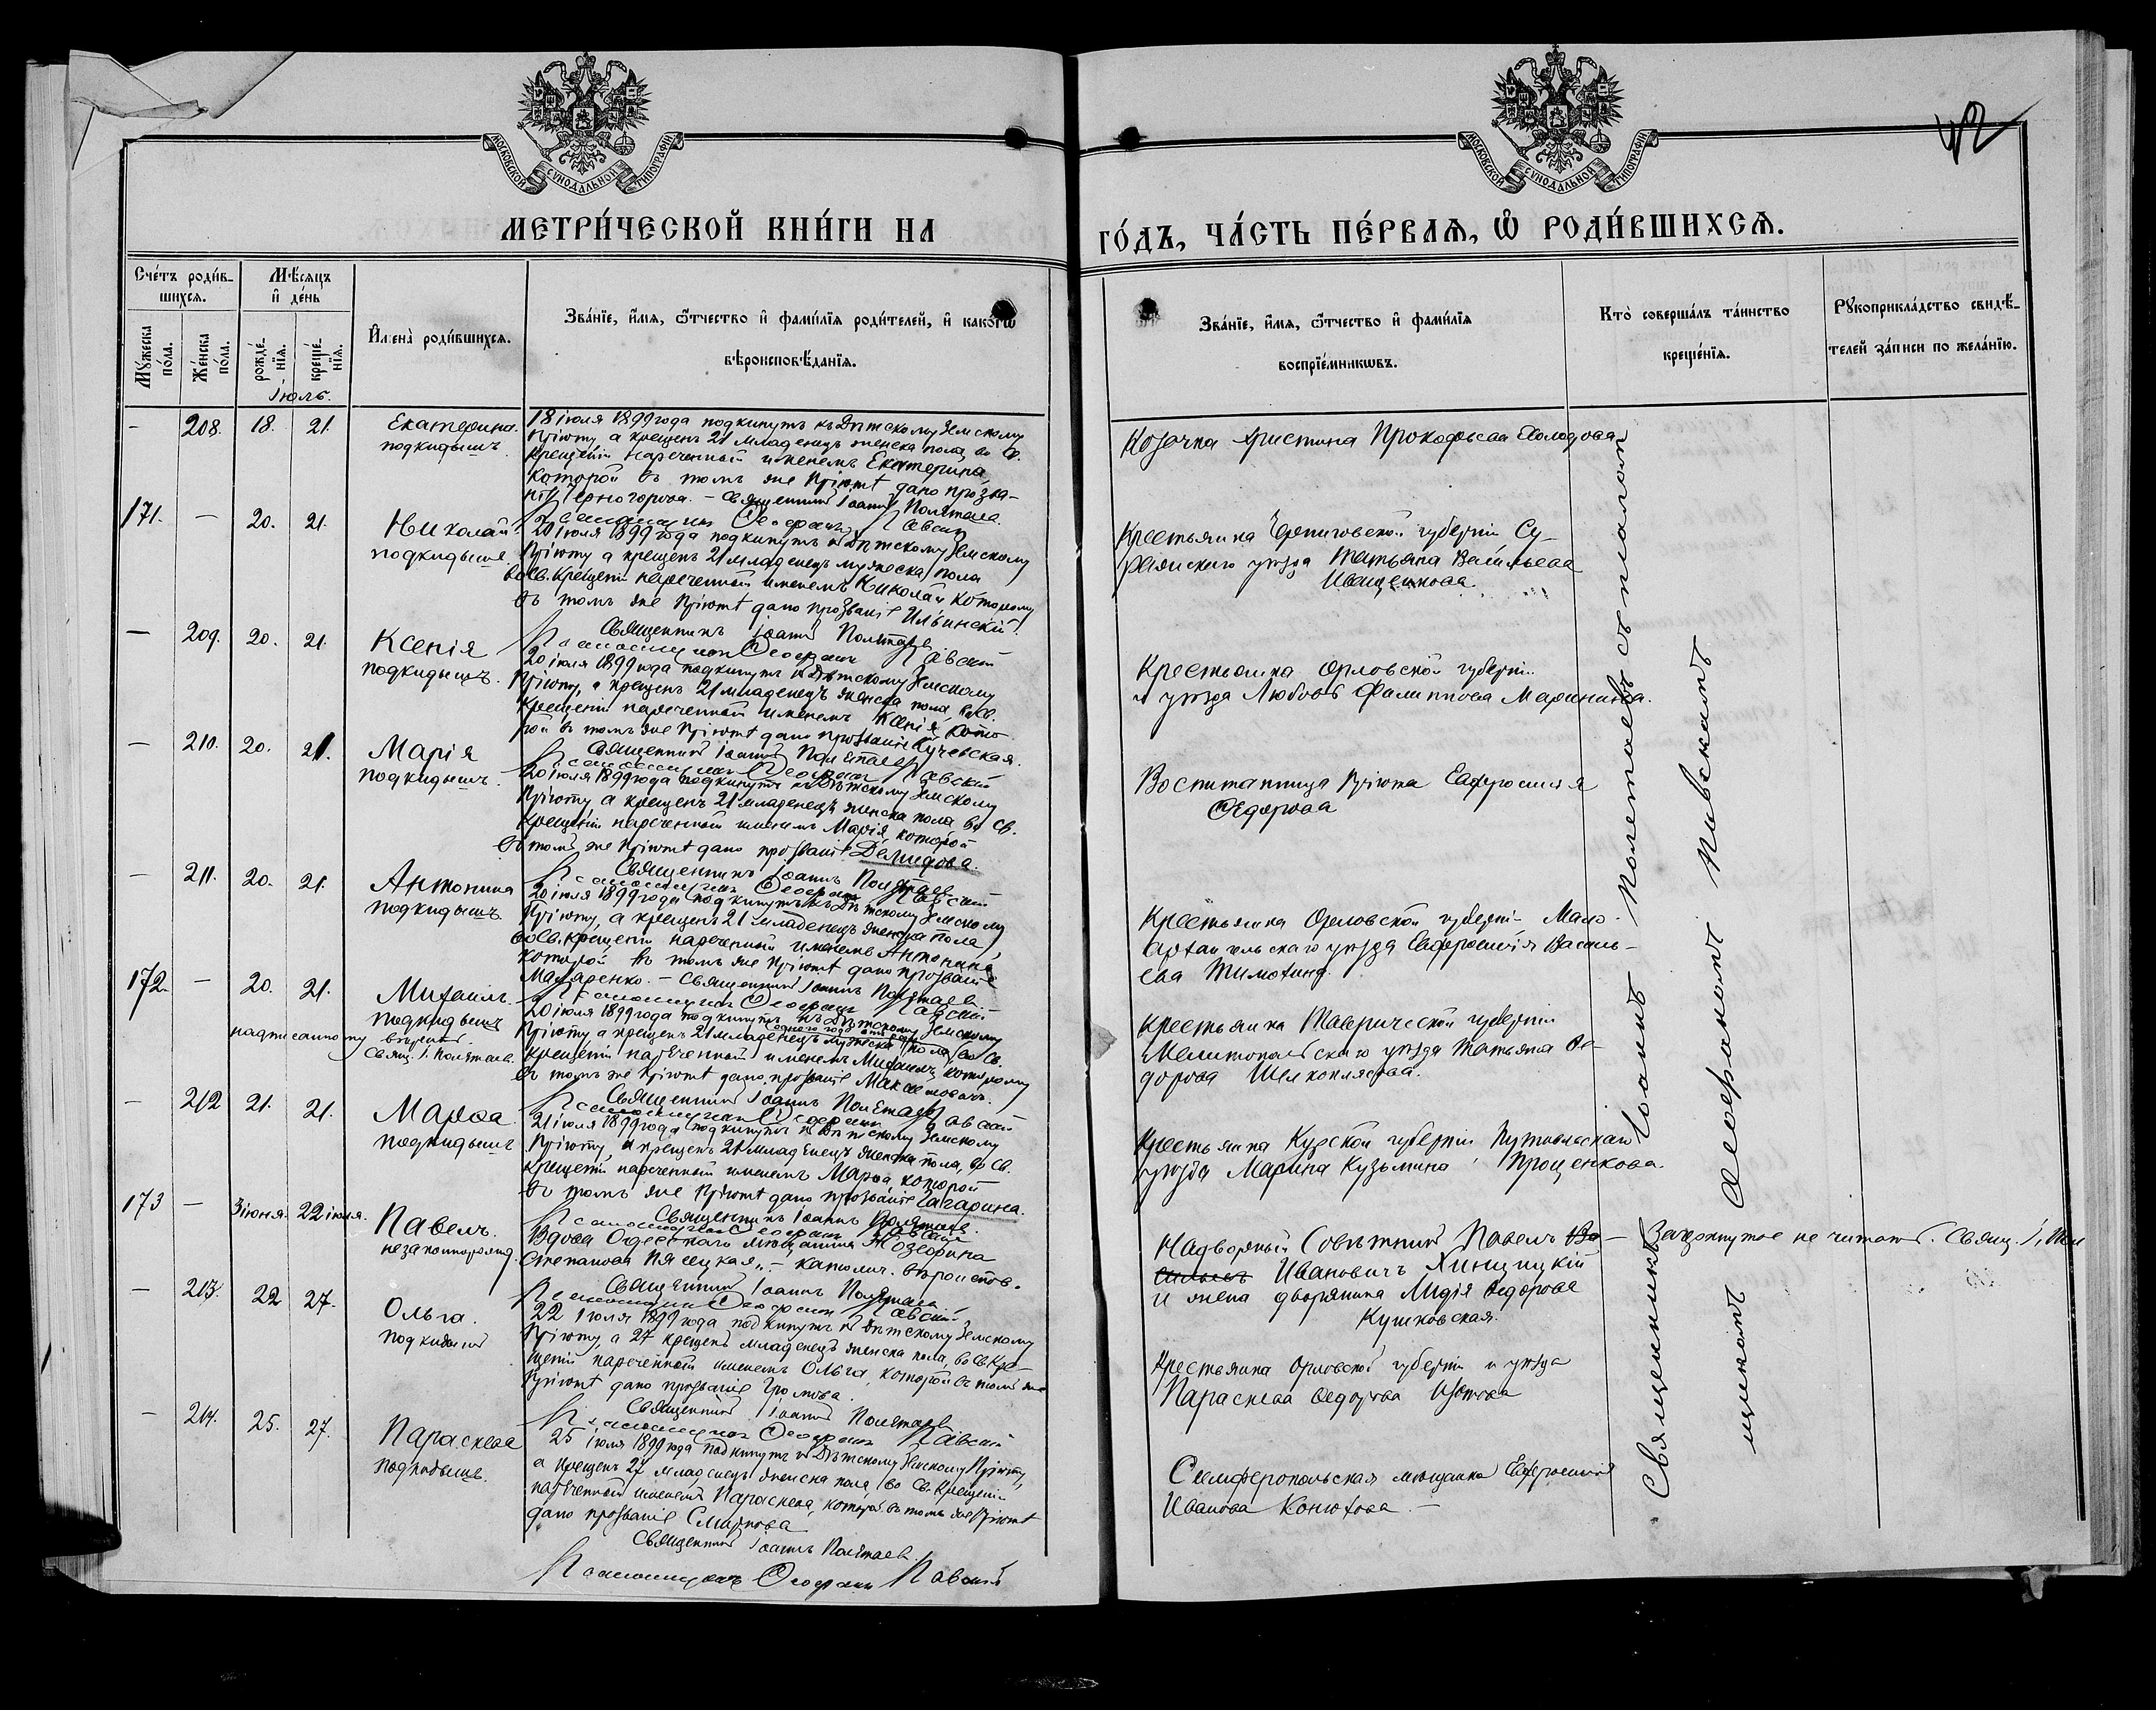 МОСКОВСКОЙ СѴНОДАЛЬНОЙ ТИПОГРАФІИ
МОСКОВСКОЙ СѴНОДАЛЬНОЙ ТИПОГРАФІИ
42
МЕТРИ́ЧЕСКОЙ КНИ́ГИ НА
ГО́ДЪ, ЧА́СТЬ ПЕ́РВАѦ, Ѽ РОДИ́ВШИХСѦ.
Сче́тъ роди́в-
шихсѧ.
Мѣ́сѧцъ
и҆ де́нь
Мꙋ́жеска
по́ла.
Же́нска
по́ла.
рожде́-
нїѧ.
креще́-
нїѧ.
И҆мена̀ роди́вшихсѧ.
Зва́нїе, и҆́мѧ, ѻ҆́тчество и҆ фами́лїѧ роди́телей, и҆ како́гѡ
вѣроисповѣ́данїѧ.
Зва́нїе, и҆́мѧ, ѻ҆́тчество и҆ фами́лїѧ
воспрїе́мникѡвъ.
Кто̀ соверша́лъ та́инство
креще́нїѧ.
Рꙋкоприкла́дство свидѣ́-
телей за́писи по жела́нїю.
Іюль.
— 208. 18. 21.
Екатерина.
подкидышъ
18 іюля 1899 года подкинутъ къ Дѣтскому Земскому
Пріюту, а крещенъ 21 младенецъ женска пола, во св.
крещеніи нареченный именемъ Екатерина,
которой въ томъ же Пріютѣ дано прозва-
ніе Черногорова. – Священникъ Іоаннъ Полетаев.
Псаломщикъ Ѳеофанъ Павскій
Козачка Христина Прокофьева Холодова
171. — 20. 21.
Николай
подкидышъ
20 іюля 1899 года подкинутъ къ Дѣтскому Земскому
Пріюту, а крещенъ 21 младенецъ мужеска пола
во св. крещеніи нареченный именемъ Николай которому
въ томъ же Пріютѣ дано прозваніе Ильинскій.
Священникъ Іоаннъ Полетаев
Псаломщикъ Ѳеофанъ Павскій
Крестьянка Черниговской губерніи Су-
ражскаго уѣзда Татьяна Васильева
Иващенкова.
— 209. 20. 21.
Ксенія
подкидышъ.
20 іюля 1899 года подкинутъ къ Дѣтскому Земскому
Пріюту, а крещенъ 21 младенецъ женска пола, во св.
крещеніи нареченный именемъ Ксенія, кото-
рой въ томъ же Пріютѣ дано прозваніе Кучевская.
Священникъ Іоаннъ Полетаев
Псаломщикъ Ѳеофанъ Павскій
Крестьянка Орловской губерніи
и уѣзда Любовь Филиппова Маринина.
— 210. 20. 21.
Марія
подкидышъ.
20 іюля 1899 года подкинутъ къ Дѣтскому Земскому
Пріюту, а крещенъ 21 младенецъ женска пола во св.
крещеніи нареченный именемъ Марія, которой
въ томъ же Пріютѣ дано прозваніе Демидова.
Священникъ Іоаннъ Полетаев
Псаломщикъ Ѳеофанъ Павскій
Воспитанница Пріюта Евфросинія
Ѳедорова
— 211. 20. 21.
Антонина
подкидышъ.
20 іюля 1899 года подкинутъ къ Дѣтскому Земскому
Пріюту, а крещенъ 21 младенецъ женска пола,
во св. крещеніи нареченный именемъ Антонина,
которой въ томъ же Пріютѣ дано прозваніе
Макаренко. – Священникъ Іоаннъ Полетаев.
Псаломщикъ Ѳеофанъ Павскій
Крестьянка Орловской губерніи Мало-
архангельскаго уѣзда Евфросинія Василь-
ева Тимохина.
172. — 20. 21.
Михаилъ.
подкидышъ
надписанному вѣрить
Свящ. І. Полетаев.
20 іюля 1899 года подкинутъ къ Дѣтскому Земскому
одного года отъ роду
Пріюту, а крещенъ 21 младенецъ мужеска пола, во св.
крещеніи нареченный именемъ Михаилъ, которому
въ томъ же Пріютѣ дано прозваніе Максимовичъ.
Священникъ Іоаннъ Полетаев
Псаломщикъ Ѳеофанъ Павскій
Крестьянка Таврической губерніи
Мелитопольскаго уѣзда Татьяна Ѳе-
дорова Шелкоплясова.
— 212 21. 21.
Марѳа
подкидышъ
21 іюля 1899 года подкинутъ къ Дѣтскому Земскому
Пріюту, а крещенъ 21 младенецъ женска пола, во св.
крещеніи нареченный именемъ Марѳа, которой
въ томъ же Пріютѣ дано прозваніе Гагарина.
Священникъ Іоаннъ Полетаев.
Псаломщикъ Ѳеофанъ Павскій
Крестьянка Курской губерніи Путивльскаго
уѣзда Марина Кузьмина Проценкова.
173 — 3 іюня. 22 іюля.
Павелъ.
незаконнорожд.
Вдова Одесскаго мѣщанина Жозефина
Степанова Пясецкая, – католич. вѣроисповѣд.
Священникъ Іоаннъ Полетаев
Псаломщикъ Ѳеофанъ Павскій
Надворный Совѣтникъ Павелъ Ва-
сильевъ Ивановичъ Линицкій
и жена дворянина Лидія Ѳедорова
Кушковская.
Зачеркнутое не читать. Свящ. І. Пол
— 213. 22 27.
Ольга.
подкидышъ
22 іюля 1899 года подкинутъ къ Дѣтскому Земскому
Пріюту, а 27 крещенъ младенецъ женска пола, во св. Кре-
щеніи нареченный именемъ Ольга, которой въ томъ же
Пріютѣ дано прозваніе Громова.
Священникъ Іоаннъ Полетаев
Псаломщикъ Ѳеофанъ Павскій
Крестьянка Орловской губерніи и уѣзда
Параскева Ѳедорова Изотова
— 214. 25. 27.
Параскева
подкидышъ.
25 іюля 1899 года подкинутъ къ Дѣтскому Земскому Пріюту,
а крещенъ 27 младенецъ женска пола, во св. Крещеніи
нареченный именемъ Параскева, которой въ томъ же Пріютѣ
дано прозваніе Смирнова
Священникъ Іоаннъ Полетаев.
Псаломщикъ Ѳеофанъ Павскій
Симферопольская мѣщанка Евфросинія
Иванова Конюхова. –
Священникъ Іоаннъ Полетаевъ съ псалом-
щикомъ Ѳеофаномъ Павскимъ